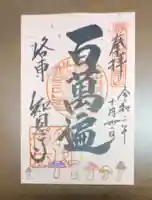 奉拝
令和二年
十月廿一日
百萬遍
洛東
知恩寺